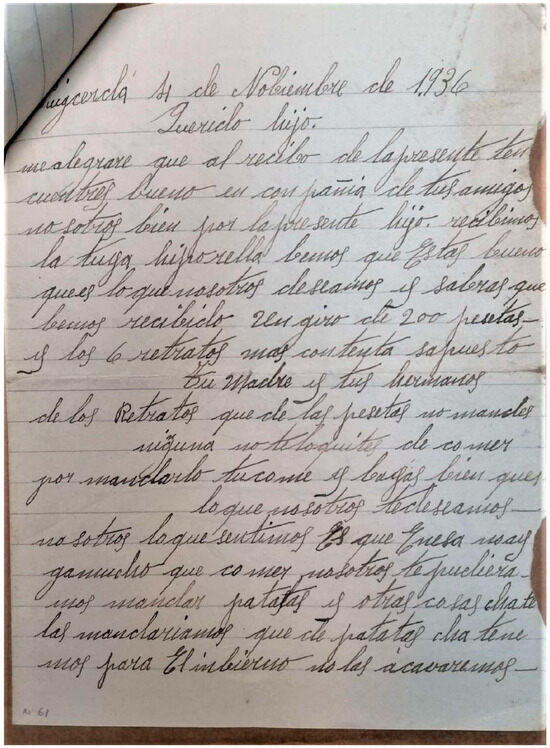 uigcerdá 4 de Nobiembre de 1936
Querido hijo.
me alegrare que al recibo de lapresente ten
cuentres bueno en conpañia de tus amigos
nosotros bien por lapresente hijo. recibimos
la tuya hiporella bemos que Estas bueno
que es loque nosotros deseamos y sabras que
bemos recibido un giro de 200 pesetas
y los 6 retratos mas contenta sapuesto
tu Madre y tus hermanos
de los Retratos que de las pesetas no mandes
niguna no teloquites de comer
por mandarlo tucome y bayas bien ques
loque nosotros tedeseamos
nosotros loque sentimos Es que Enesa noay
gamucho que comer nosotros te pudiera
mos mandar patatas y otras cosas chate
las mandariamos que de patatas cha tene
mos para Elinbierno no las acavaremos
No 61